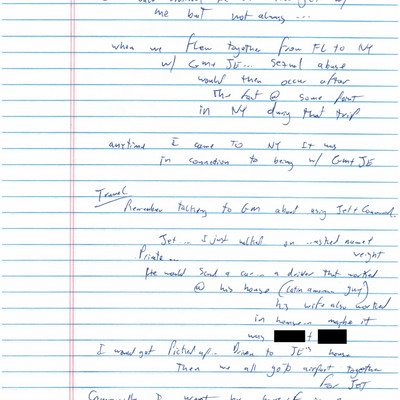 me but not always ...
when we flew together from FL to NY
w/ GM + JE ... sexual abuse
would then occur after
the fact @ some point
in NY during that trip
anytime I came to NY it was
in connection to being w/ GM + JE
Travel
Remember talking to GM about using Jet + Commercial..
Jet .. I just walked on .. asked name +
Private ... weight
He would send a car .. a driver that worked
@ his house (latin american guy)
his wife also worked
in house .. maybe it
was +
I would get picked up .. Driven to JE's house
Then we all go to airport together
for Jet
Commercially I went by